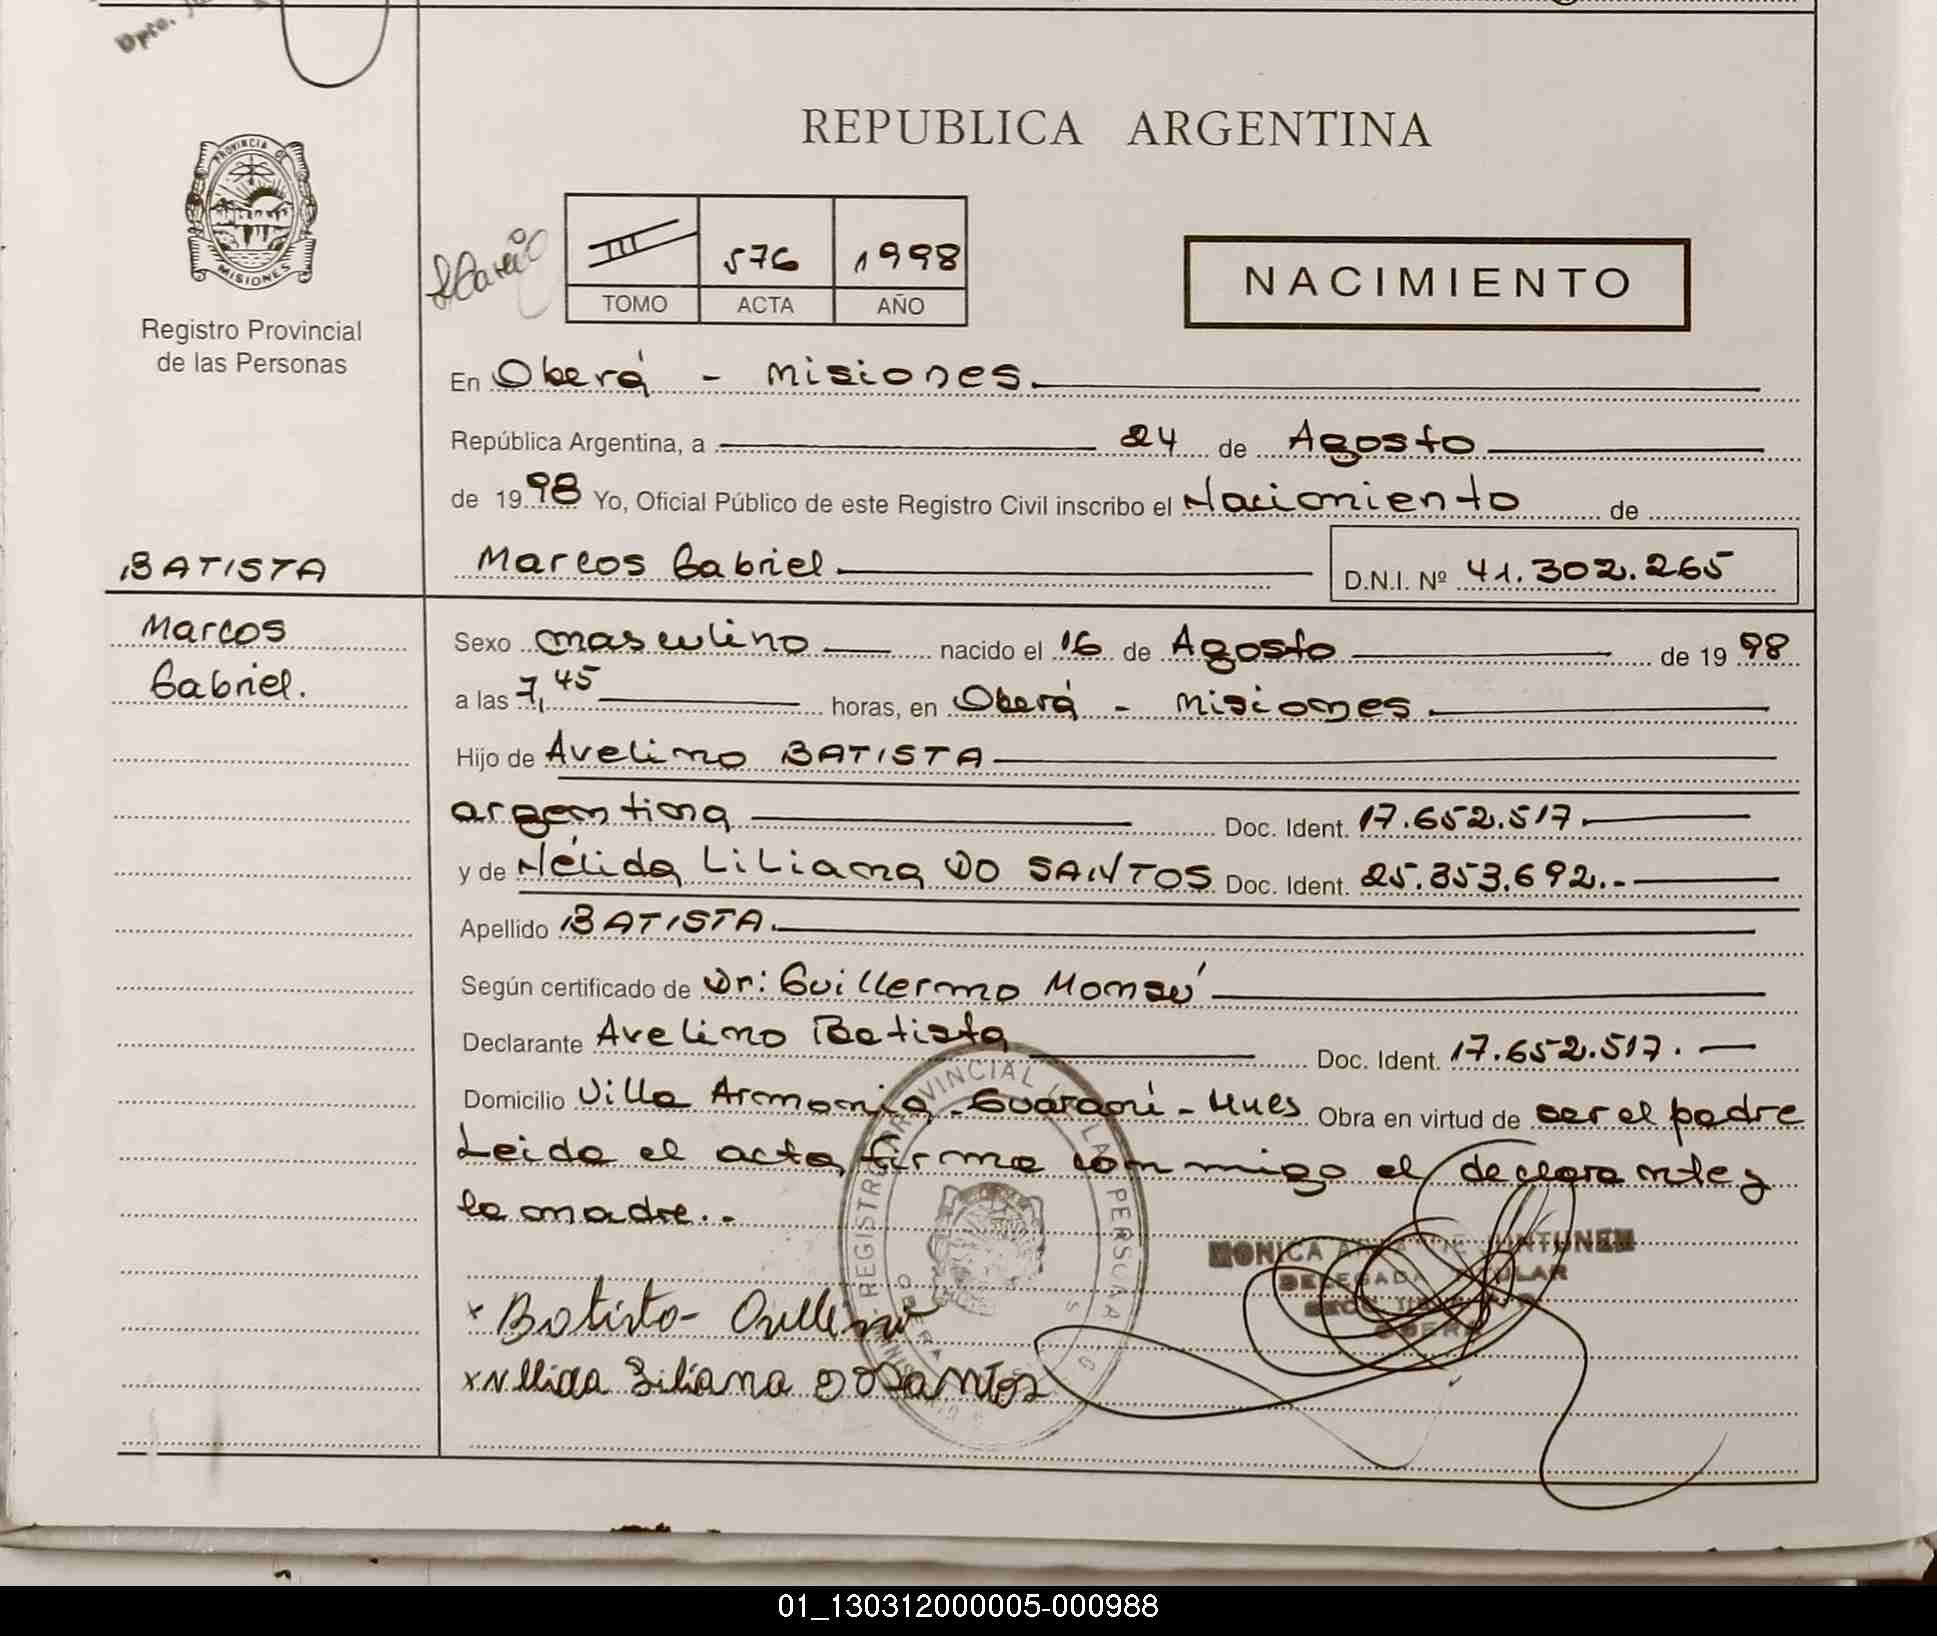 Dpto.
REPUBLICA ARGENTINA
PROVINCIA DE
MISIONES
Registro Provincial
de las Personas
III 576 1998
TOMO ACTA AÑO
NACIMIENTO
En Oberá - Misiones.
República Argentina, a 24 de Agosto
de 1998 Yo, Oficial Público de este Registro Civil inscribo el Nacimiento de
BATISTA
Marcos
Gabriel.
Marcos Gabriel D.N.I. Nº 41.302.265
Sexo masculino nacido el 16 de Agosto de 1998
a las 7,45 horas, en Oberá - Misiones
Hijo de Avelino BATISTA
argentina Doc. Ident. 17.652.517.
y de Nélida Liliana DO SANTOS Doc. Ident. 25.353.692.-
Apellido BATISTA.
Según certificado de Dr: Guillermo Monsú
Declarante Avelino Batista Doc. Ident. 17.652.517.
Domicilio Villa Armonía - Guaraní - Mnes Obra en virtud de ser el padre
Leida el acta, firma conmigo el declarante y
la madre..
REGISTRO PROVINCIAL DE LAS PERSONAS
MONICA DE JUNTUNEN
DELEGADA TITULAR
OBERA
x Batista -
x Nllida Liliana DO SANTOS
01_130312000005-000988